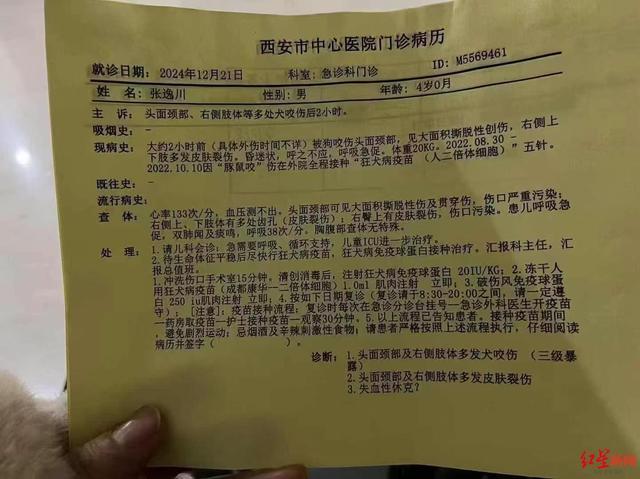 西安市中心医院门诊病历
就诊日期: 2024年12月21日 科室: 急诊科门诊 ID: M5569461
姓 名: 张逸川 性别: 男 年龄: 4岁0月
主 诉: 头面颈部、右侧肢体等多处犬咬伤后2小时。
吸烟史: -
现病史: 大约2小时前(具体外伤时间不详)被狗咬伤头面颈部，见大面积撕脱性创伤，右侧上
下肢多发皮肤裂伤。昏迷状，呼之不应，呼吸急促。体重20KG。2022.08.30 -
2022.10.10因“豚鼠咬”伤在外院全程接种“狂犬病疫苗 (人二倍体细胞)”五针。
既往史: -
流行病史:
查 体: 心率133次/分，血压测不出。头面颈部可见大面积撕脱性伤及贯穿伤，伤口严重污染；
右侧上、下肢体有多处齿孔(皮肤裂伤)；右臀上有皮肤裂伤，伤口污染。患儿呼吸急
促，双肺闻及痰鸣，呼吸38次/分。胸腹部查体无特殊。
处 理: 1.请儿科会诊: 急需要呼吸、循环支持，儿童ICU进一步治疗。
2.待生命体征平稳后尽快行狂犬病疫苗、狂犬病免疫球蛋白接种治疗。汇报科主任，汇
报总值班。
1.冲洗伤口手术室15分钟，清创消毒后，注射狂犬病免疫球蛋白 20IU/KG；2.冻干人
用狂犬病疫苗(成都康华一二倍体细胞) 1.0ml 肌肉注射 立即；3.破伤风免疫球蛋
白 250 iu肌肉注射 立即；4.按如下日期复诊(复诊请于8:30-20:00之间，请一定遵
守)；[注意]: 疫苗接种流程: 复诊时每次在急诊分诊台挂号—急诊外科医生开疫苗
—药房取疫苗—护士接种疫苗—观察30分钟。5.以上流程已告知患者。接种疫苗期间
，避免剧烈运动；忌烟酒及辛辣刺激性食物；请患者严格按照上述流程执行，仔细阅读
病历并签字( )。
诊断: 1.头面颈部及右侧肢体多发犬咬伤 (三级暴
露)
2.头面颈部及右侧肢体多发皮肤裂伤
3.失血性休克?
红星新闻